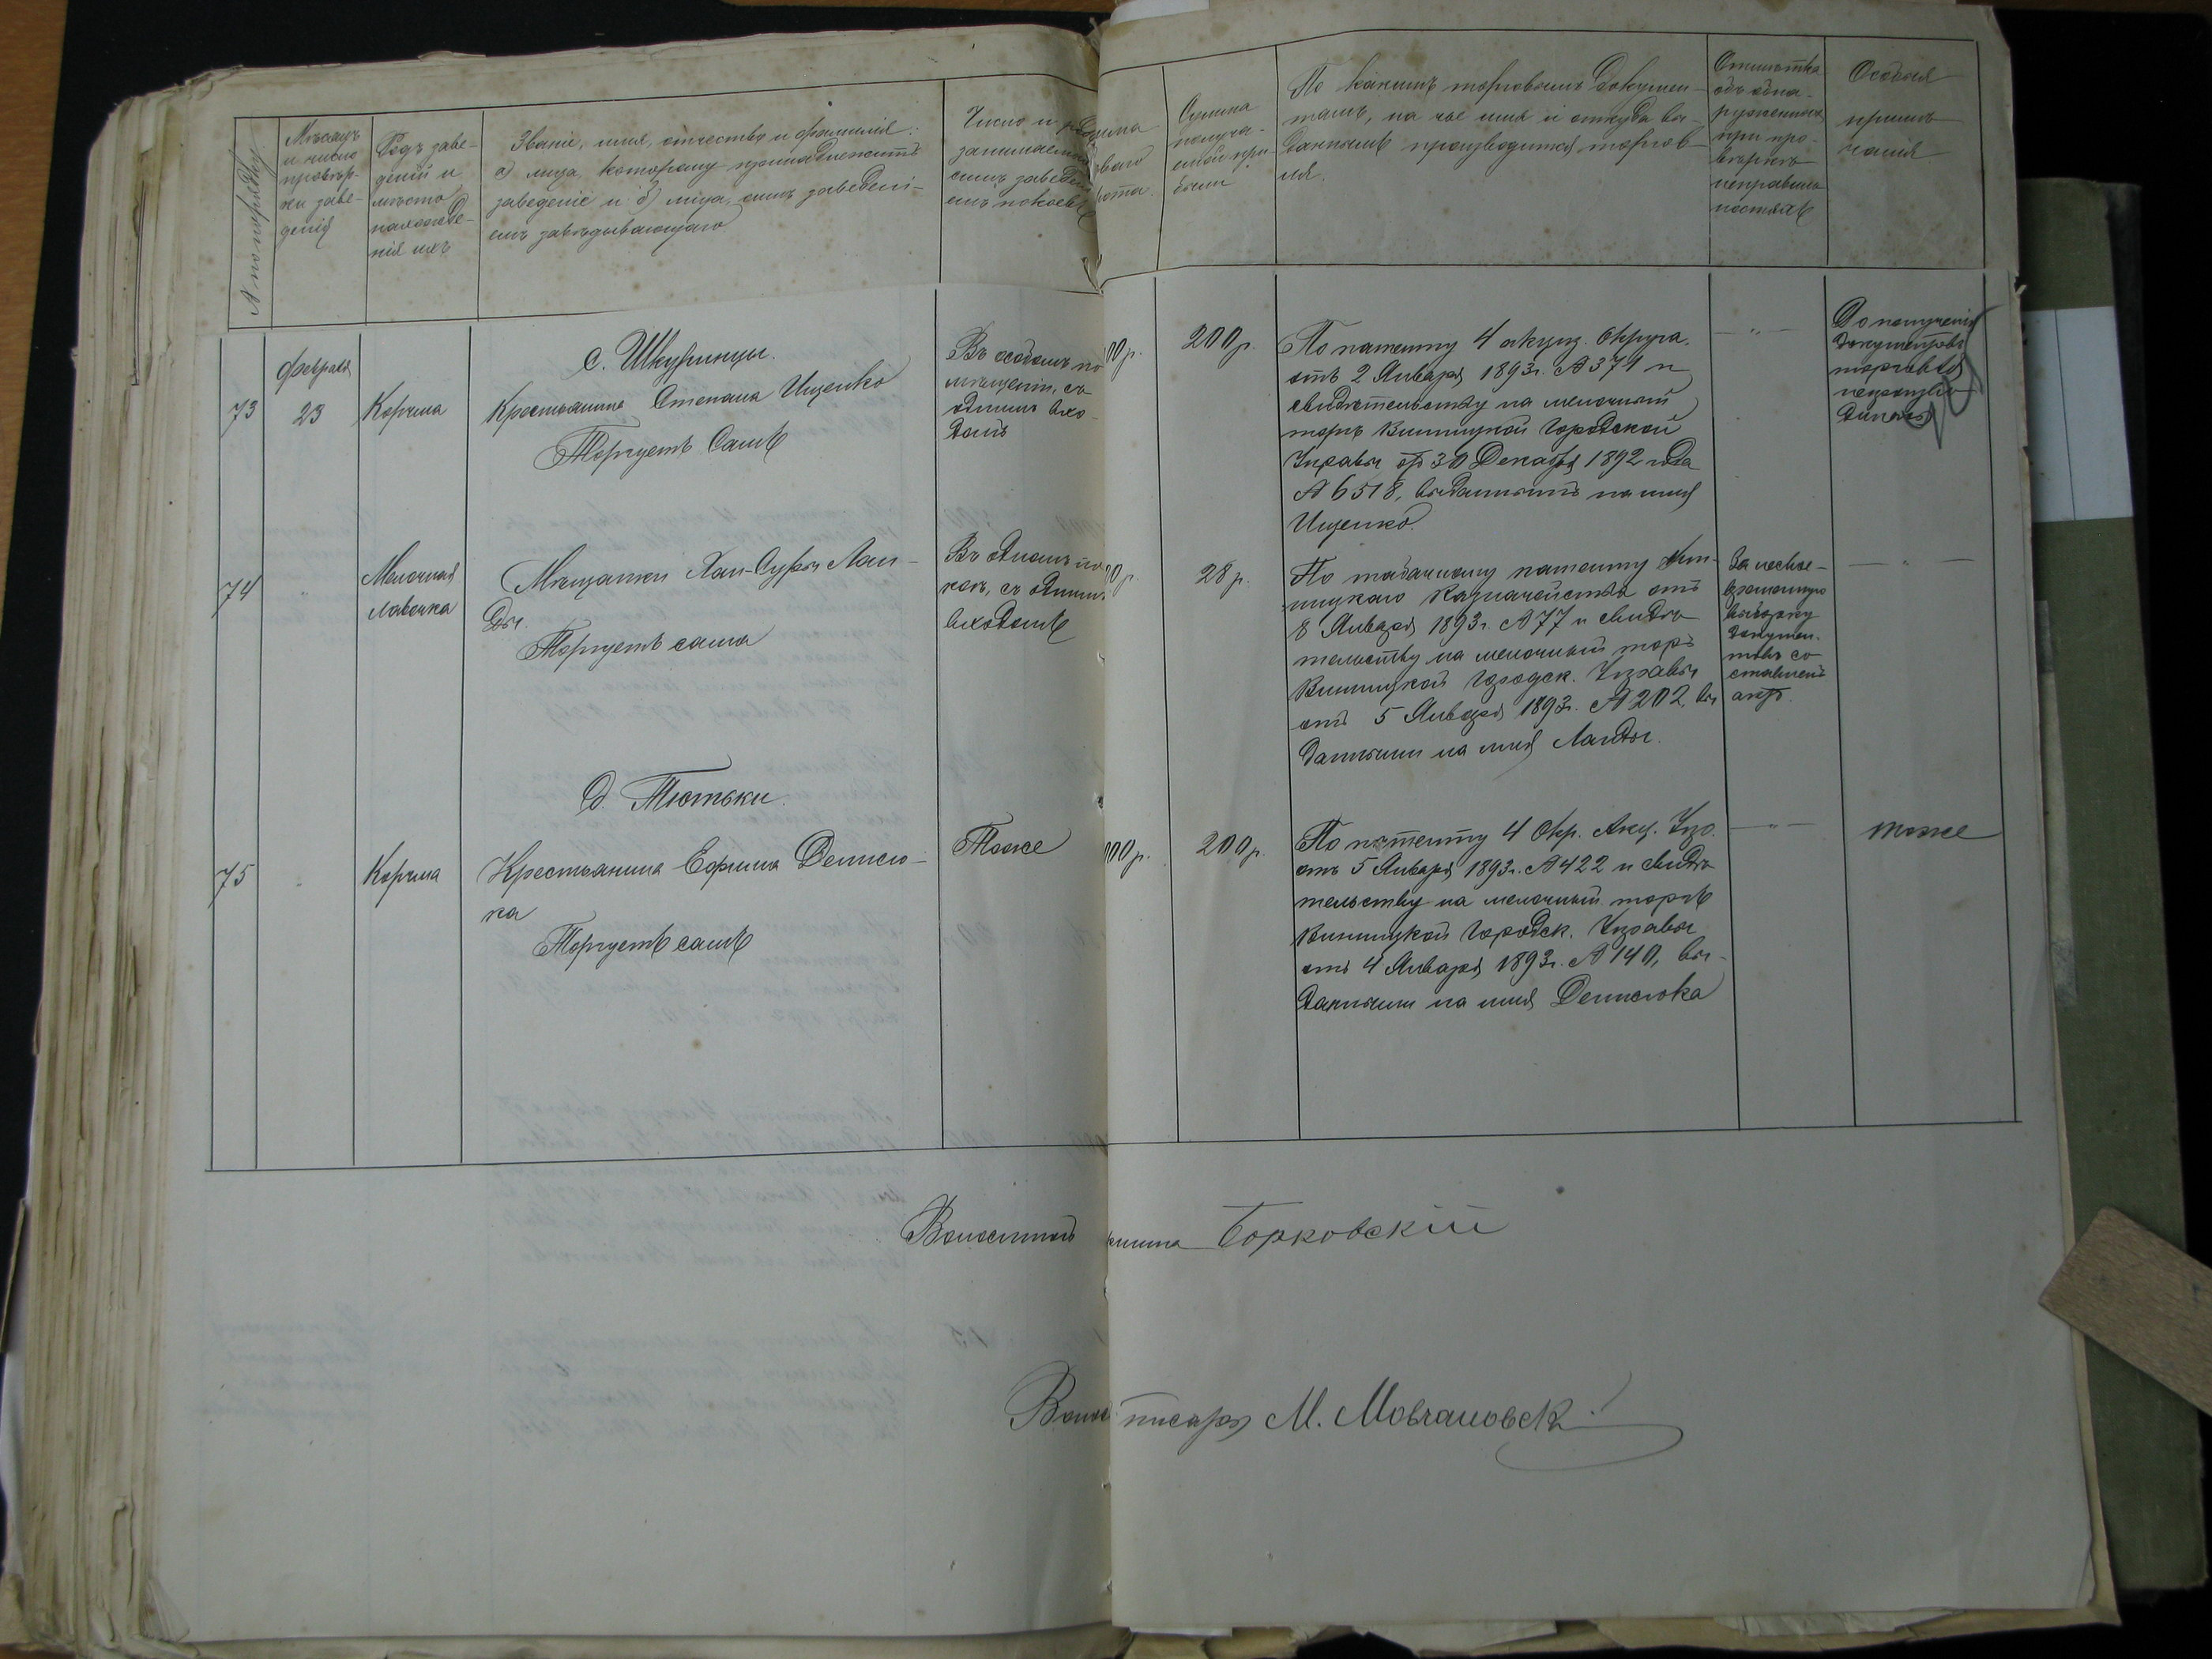 № по порядку
Мѣсяцъ
и число
провѣр-
ки заве-
денія
Родъ заве-
деній и
мѣсто
нахожде-
нія ихъ
Званіе, имя, отчество и фамилія:
а) лица, которому принадлежитъ
заведеніе и б) лица, симъ заведені-
емъ завѣдывающаго
Число и
занимаемых
симъ заведені
емъ покоевъ
Сумма
получа-
емой при-
были
По какимъ торговымъ докумен-
тамъ, на чье имя и откуда вы-
даннымъ производится торгов-
ля.
Отмѣтка
объ обна-
руженныхъ
при про-
вѣркѣ
неправиль
ностяхъ
Особыя
примѣ
чанія
с. Шкуринцы.
73
Февраля
23
Корчма
Крестьянина Степана Ищенко
Торгуетъ Самъ
Въ особомъ по
мѣщеніи, съ
однимъ вхо-
домъ
00 р.
200 р.
По патенту 4 акциз. Округа.
отъ 2 Января 1893 г. № 371 и
свидѣтельству на мелочный
торгъ Винницкой Городской
Управы отъ 30 Декабря 1892 года
№ 6518, выданнымъ на имя
Ищенко.
— " —
До полученія
документовъ
торговля
непроизво-
дилась
74
"
Мелочная
лавочка
Мѣщанки Хаи-Суры Лан-
ды.
Торгуетъ сама
Въ одномъ по
коѣ, съ однимъ
входомъ
0 р.
28 р.
По табачному патенту Вин-
ницкаго Казначейства отъ
8 Января 1893 г. № 77 и свидѣ-
тельству на мелочный торгъ
Винницкой Городск. Управы
отъ 5 Января 1893 г. № 202, вы
данными на имя Ланды.
За несвое-
временную
выборку
докумен-
товъ со-
ставленъ
актъ.
— " —
д. Тютьки.
75
"
Корчма
Крестьянина Ефима Денисю-
ка
Торгуетъ самъ
Тоже
000 р.
200 р.
По патенту 4 Окр. Акц. Упр.
отъ 5 Января 1893 г. № 422 и свидѣ-
тельству на мелочный торгъ
Винницкой Городск. Управы
отъ 4 Января 1893 г. № 140, вы-
данными на имя Денисюка
— " —
тоже
Волостной Борковскій
писарь М. Мовчановск